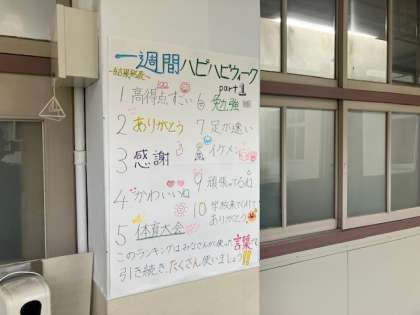 一週間ハピハピウィーク
~結果発表~ part1
1 高得点すごい
2 ありがとう
3 感謝
4 かわいいね
5 体育大会
6 勉強
7 足が速い
8 イケメン
9 頑張ってるね
10 学校来てくれてありがとう
このランキングはみなさんが使った言葉です
引き続きたくさん使いましょう!!